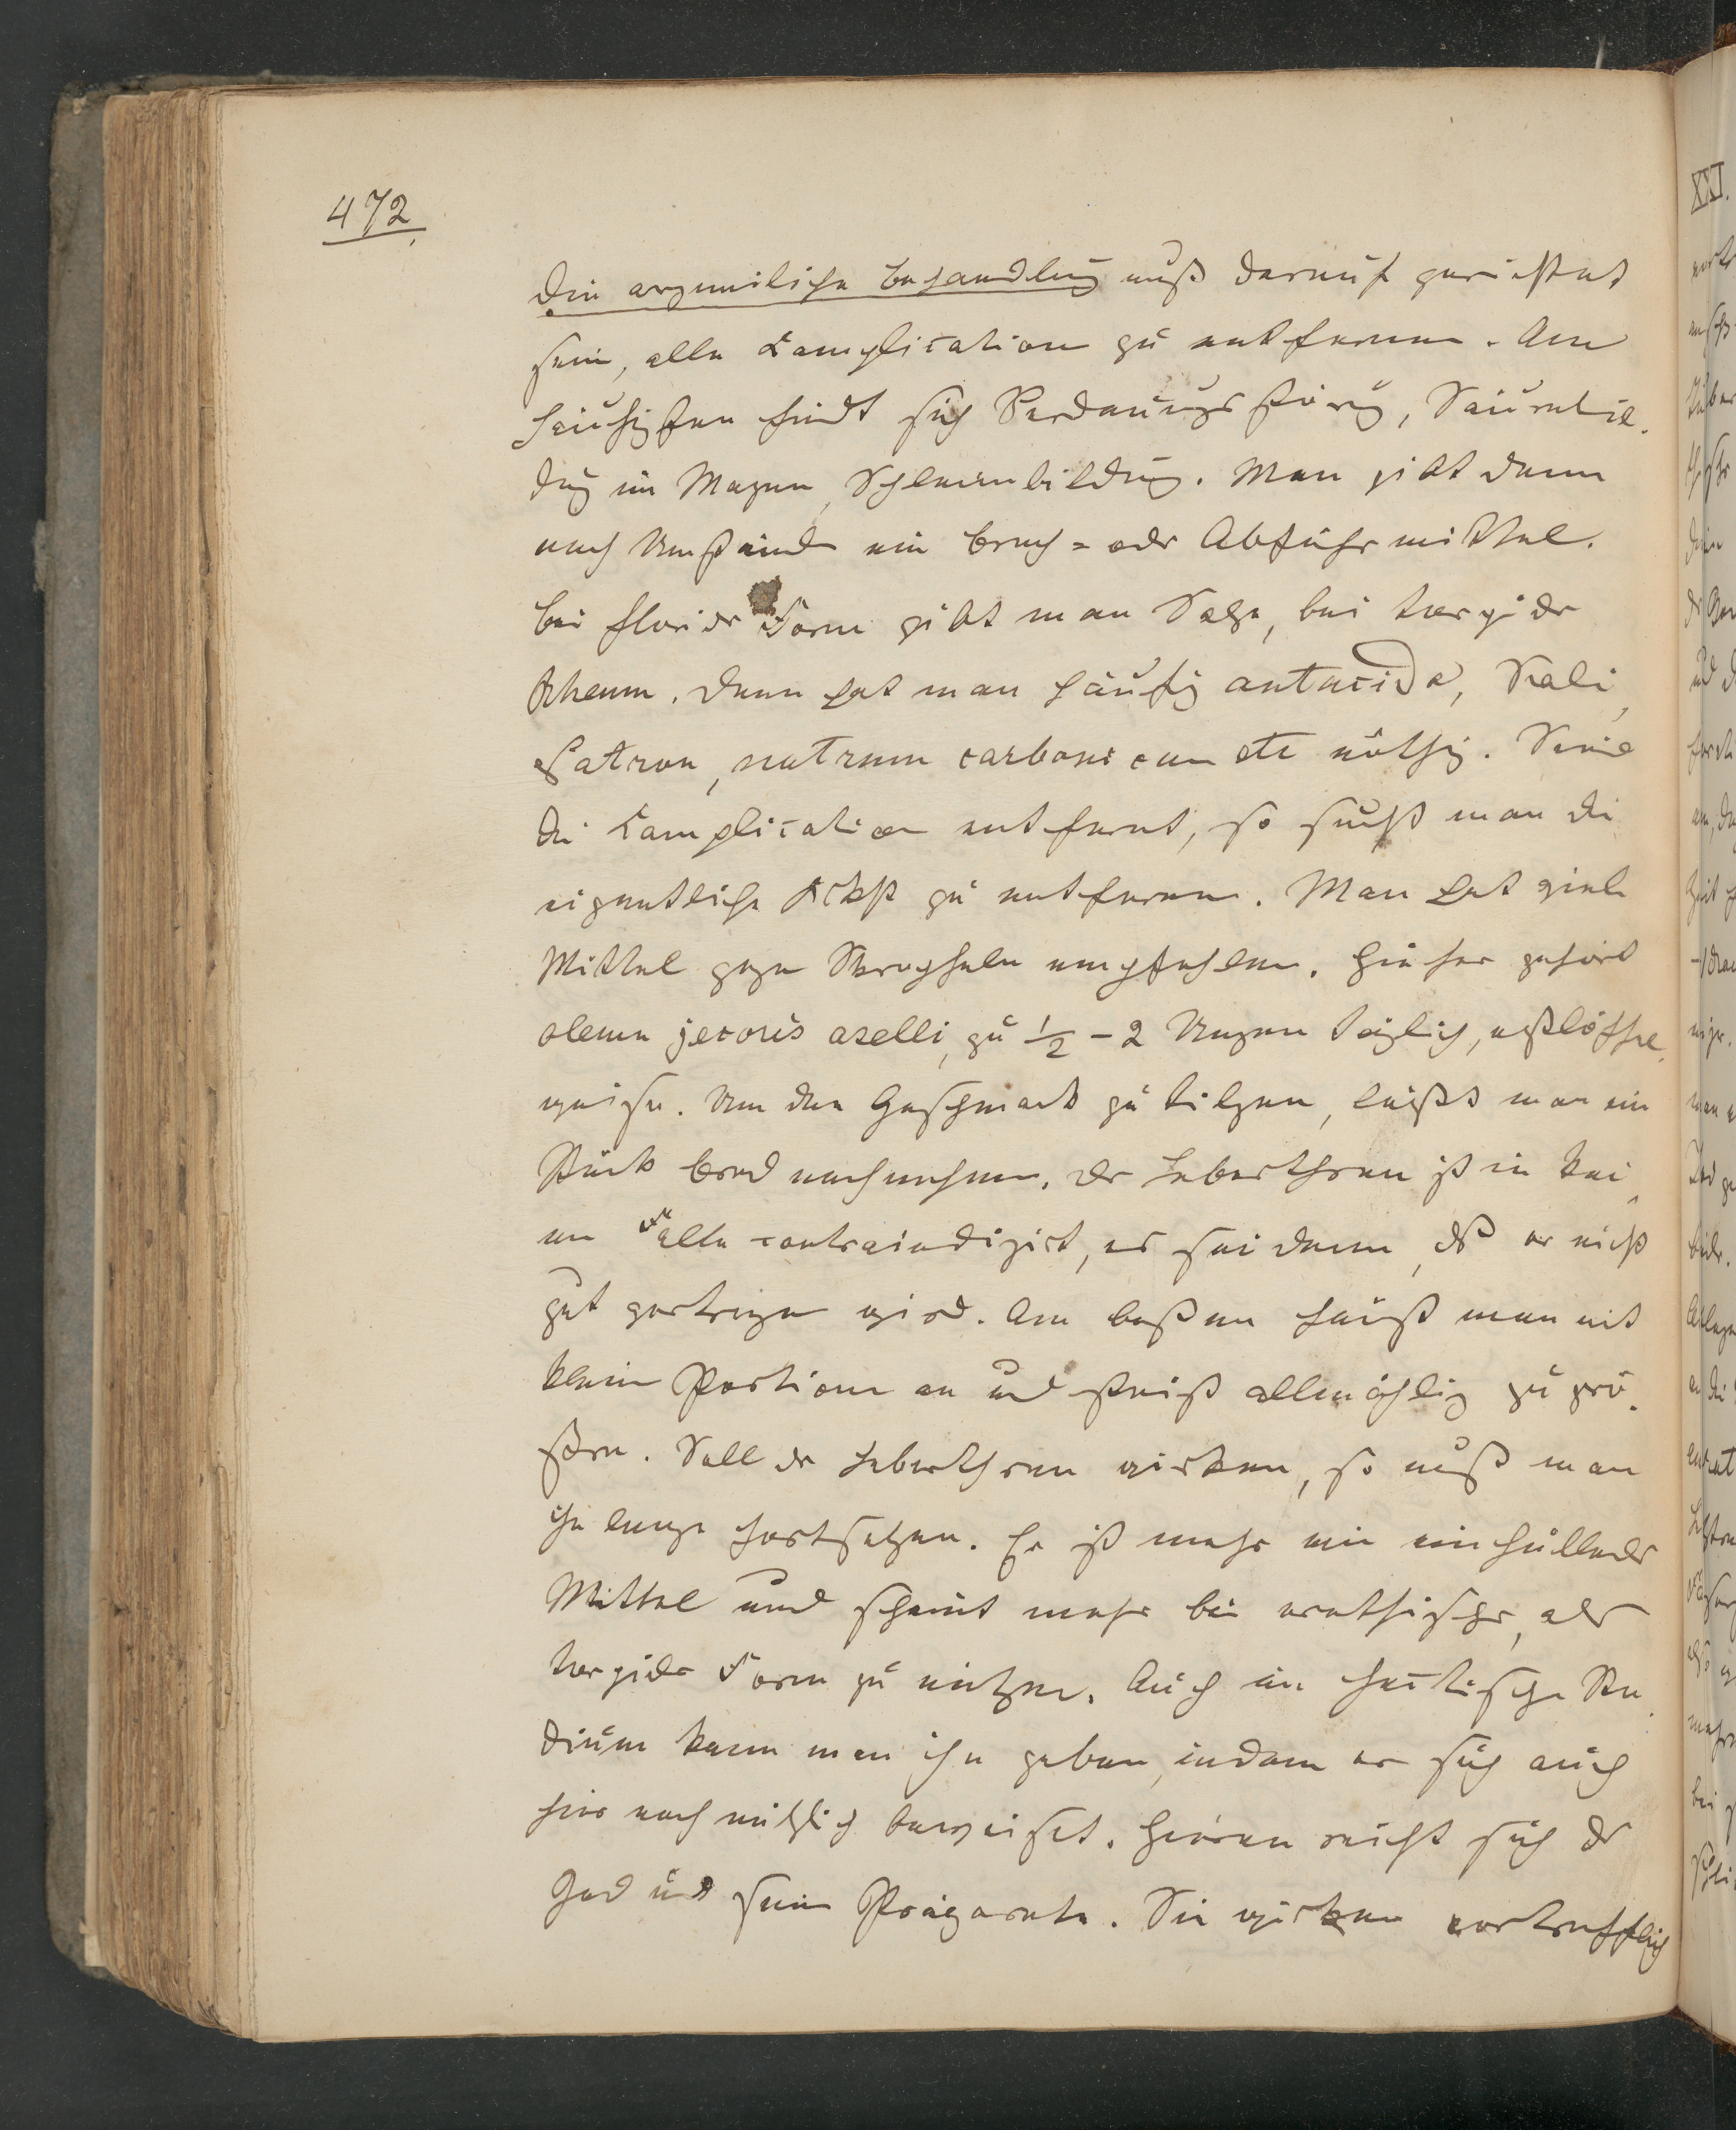 472.
Die arzneiliche Behandlung muß darauf gerichtet
sein, alle Complication zu entfernen. Am
häufigsten findt sich Verdauungsstörung, Säurebil-
dug im Magen, Schleimbildung. Man gibt dann
nach Umständen ein Brech= oder Abführmittel.
Bei florider Form gibt man Salze, bei torpider
Rheum. Dann hat man häufig antacida, Kali,
Natron, natrum carbonicum etc nöthig. Sind
die Complication entfernt, so sucht man die
eigentliche zu entfernen. Man hat viele
Mittel gegen Skropheln empfohlen. Hieher gehört
oleum jecoris aselli, zu ½ – 2 Unzen täglich, eßlöffel-
weise. Um den Geschmack zu tilgen, läßt man ein
Stück Brod nachnehmen. Der Leberthran ist in kei-
nem Falle contraindizirt, es sei denn, daß er nicht
gut vertragen wird. Am besten fängt man mit
kleinen Portionen an und steigt allmählig zu grö-
ßern. Soll der Leberthran wirken, so muß man
ihn lange fortsetzen. Er ist mehr ein einhüllendes
Mittel und scheint mehr bei erethischer, als
torpider Form zu nützen. Auch im hectischen Sta-
dium kann man ihn geben, indem er sich auch
hier noch nützlich beweiset. Hieran reiht sich der
Jod und sein Präparate. Sie wirken vortrefflich